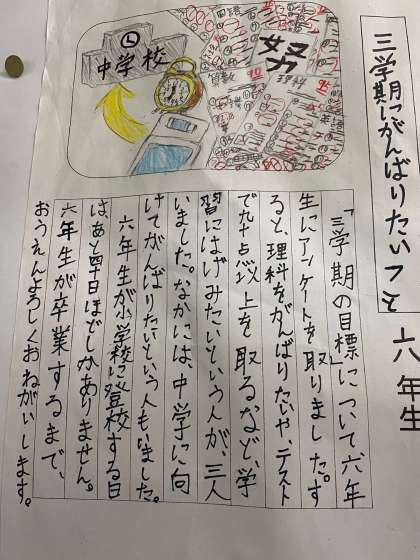 三学期にがんばりたいこと
六年生
中学校
努
国語
算数
理科
英語
「三学期の目標について六年
生にアンケートを取りました。す
ると、理科をがんばりたいや、テスト
で九十点以上を取るなど、学
習にはげみたいという人が、三人
いました。なかには、中学に向
けてがんばりたいという人もいました。
六年生が小学校に登校する日
は、あと四十日ほどしかありません。
六年生が卒業するまで、
おうえんよろしくおねがいします。